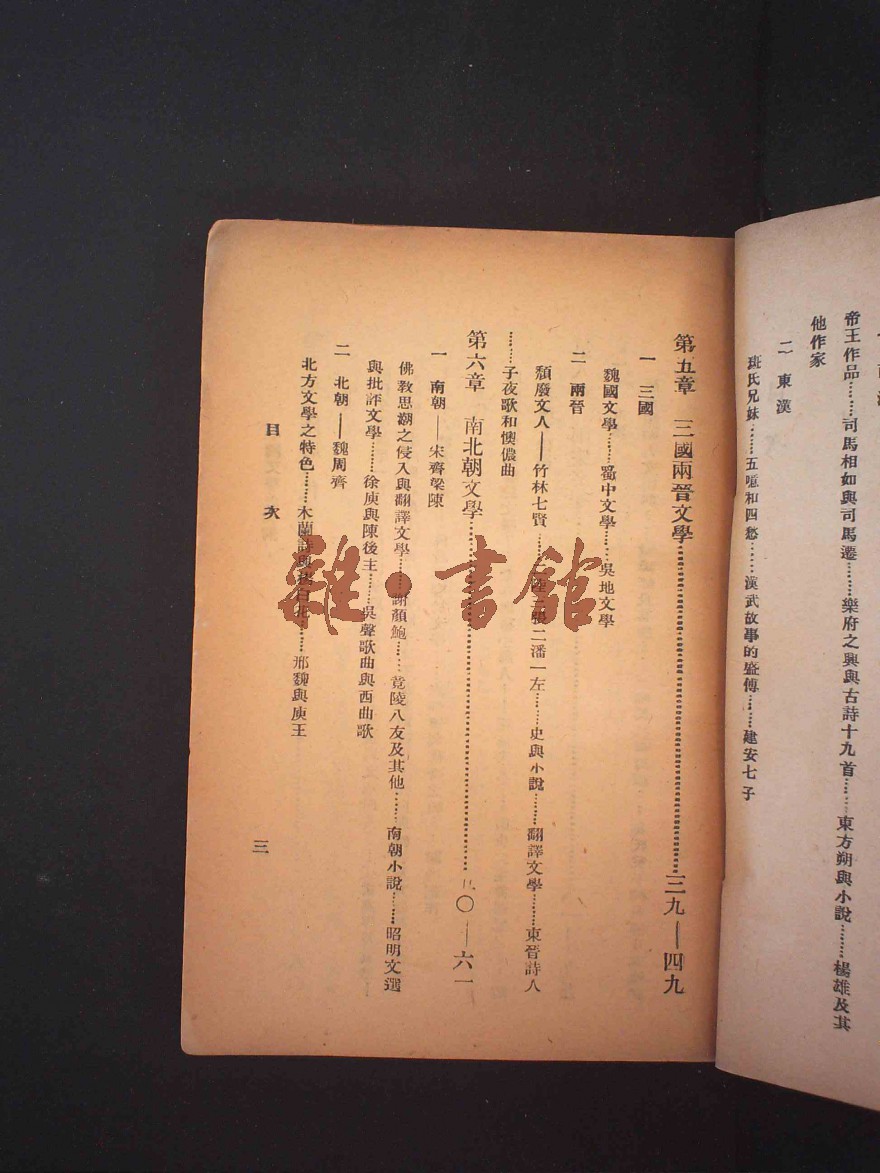 帝王作品……司馬相如與司馬遷……樂府之興與古詩十九首……東方朔與小說……楊雄及其
他作家
二 東漢
班氏兄妹……五噫和四愁……漢武故事的盛傳……建安七子
第五章 三國兩晉文學……三九—四九
一 三國
魏國文學……蜀中文學……吳地文學
二 兩晉
頹廢文人——竹林七賢……二陸三張二潘一左……史與小說……翻譯文學……東晉詩人
……子夜歌和懊儂曲
第六章 南北朝文學……五〇—六一
一 南朝——宋齊梁陳
佛教思潮之侵入與翻譯文學……謝顏鮑……竟陵八友及其他……南朝小說……昭明文選
與批評文學……徐庾與陳後主……吳聲歌曲與西曲歌
二 北朝——魏周齊
北方文學之特色……木蘭詩與楊白花……邢魏與庾王
目次
三
雜·書館